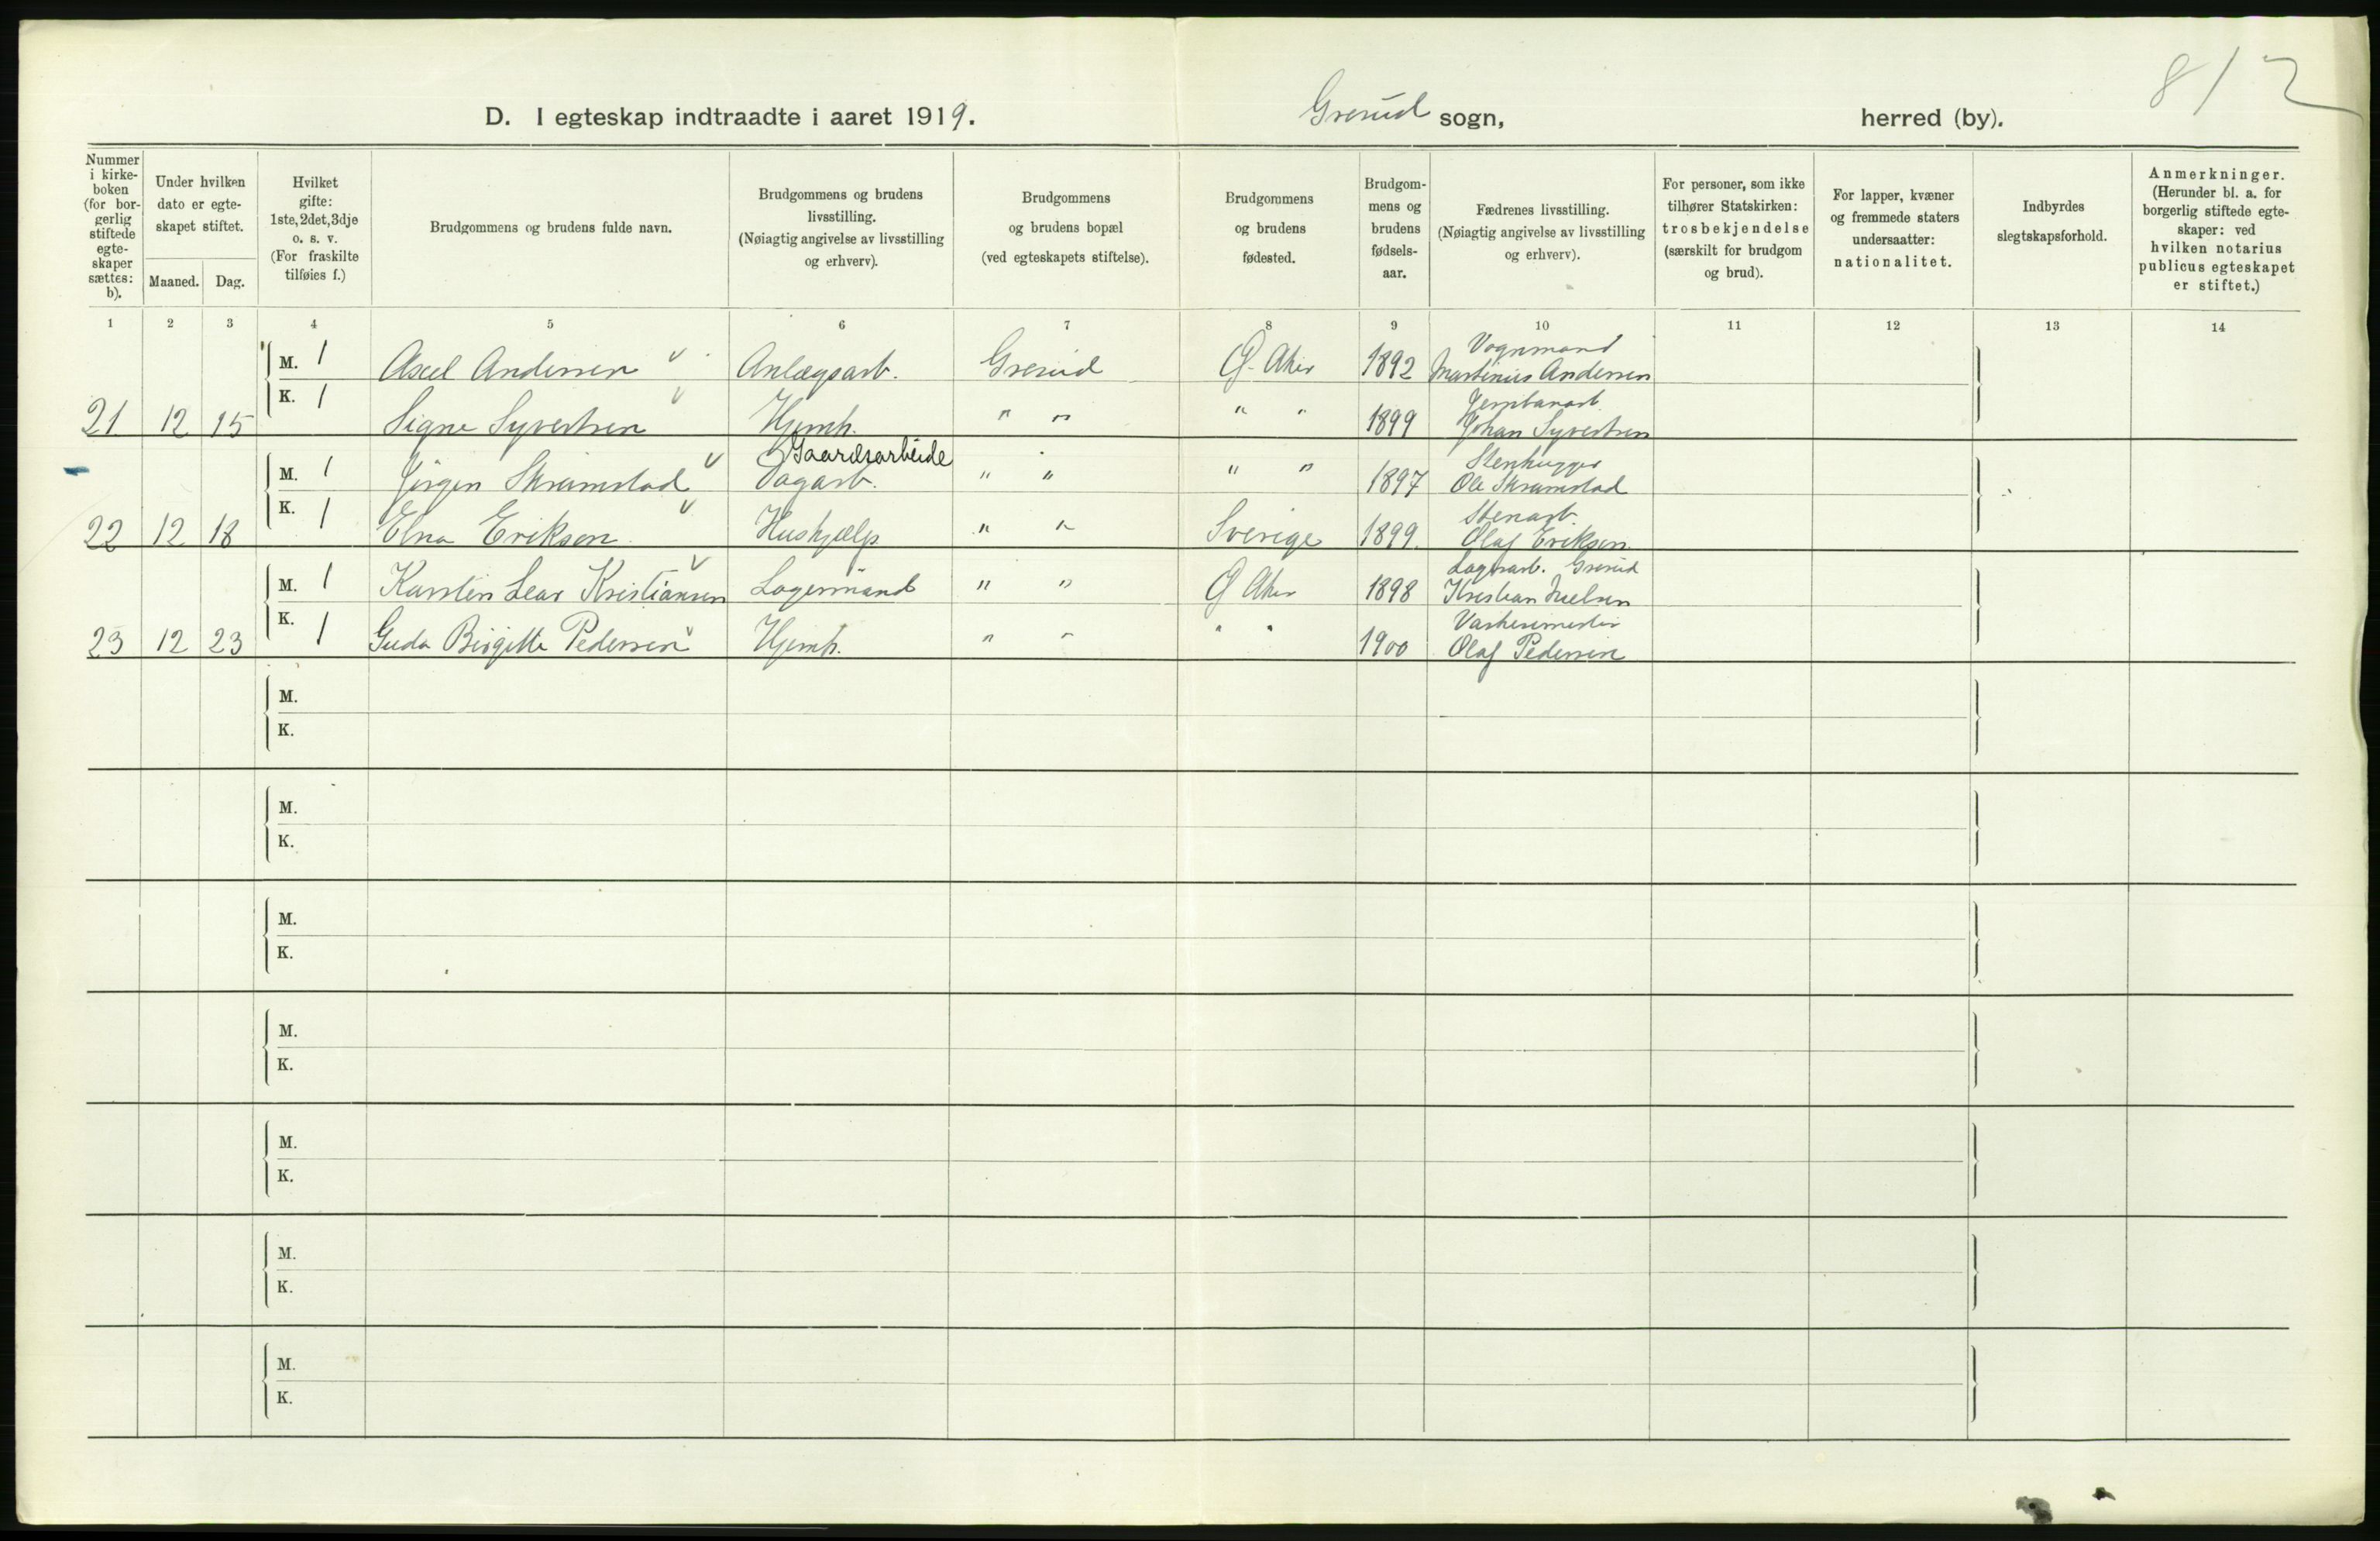 812
D. I egteskap indtraadte i aaret 1919. Grorud sogn, herred (by).
Nummer i kirkeboken (for borgerlig stiftede egteskaper sættes: b).
Under hvilken dato er egteskapet stiftet.
Maaned. Dag.
Hvilket gifte: 1ste, 2det, 3dje o. s. v. (For fraskilte tilføies f.)
Brudgommens og brudens fulde navn.
Brudgommens og brudens livsstilling. (Nøiagtig angivelse av livsstilling og erhverv).
Brudgommens og brudens bopæl (ved egteskapets stiftelse).
Brudgommens og brudens fødested.
Brudgommens og brudens fødselsaar.
Fædrenes livsstilling. (Nøiagtig angivelse av livsstilling og erhverv).
For personer, som ikke tilhører Statskirken: trosbekjendelse (særskilt for brudgom og brud).
For lapper, kvæner og fremmede staters undersaatter: nationalitet.
Indbyrdes slegtskapsforhold.
Anmerkninger. (Herunder bl. a. for borgerlig stiftede egteskaper: ved hvilken notarius publicus egteskapet er stiftet.)
1 2 3 4 5 6 7 8 9 10 11 12 13 14
Vognmand
M. 1 Axel Andersen Anlægsarb. Grorud Ø. Aker 1892 Martinius Andersen
Jernbanarb.
21 12 15 K. 1 Signe Syvertsen Hjemh. " " " " 1899 Johan Syvertsen
Gaardsarbeide Stenhugger
M. 1 Jørgen Skramstad Dagarb. " " " " 1897 Ole Skramstad
Stenarb.
22 12 18 K. 1 Elna Erikson Hushjælp " " Sverige 1899 Olaf Erikson
Lagerarb. Grorud
M. 1 Karsten Leav Kristiansen Lagermand " " Ø Aker 1898 Kristian Nielsen
23 12 23 K. 1 Guda Birgitte Pedersen Hjemh. " " " " 1900 Olaf Pedersen
M.
K.
M.
K.
M.
K.
M.
K.
M.
K.
M.
K.
M.
K.